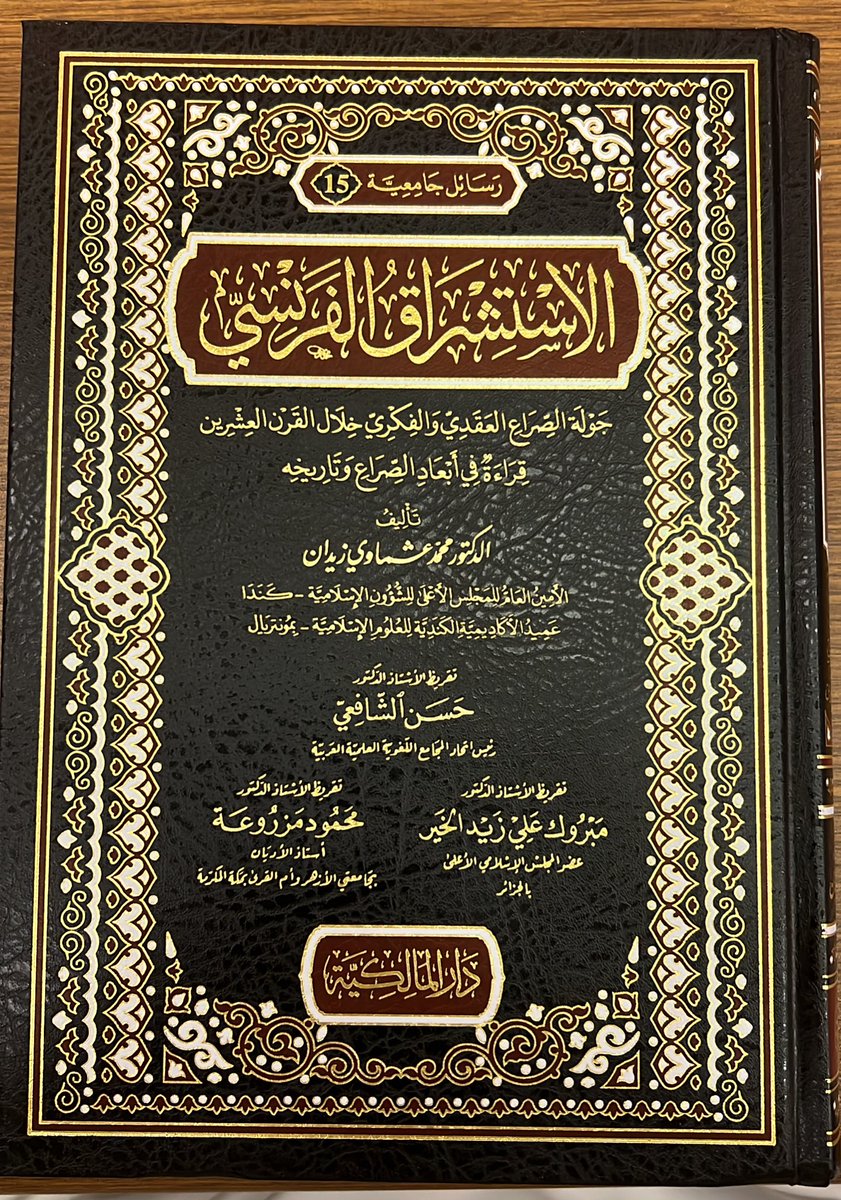 رَسَائِل جَامِعِيَّة 15
الِاسْتِشْرَاقُ الفَرَنْسِيّ
جَوْلَة الصِّرَاعِ العَقَدِيّ وَالفِكْرِيّ خِلَال القَرْن العِشْرِين
قِرَاءَةٌ فِي أَبْعَادِ الصِّرَاعِ وَتَارِيخِه
تَأْلِيفُ
الدكتور محمد عشماوي زيدان
الأَمِين العَامّ للمَجْلِس الأَعْلَى للشُّؤُونِ الإِسْلَامِيَّة - كَنَدَا
عَمِيدُ الأَكَادِيمِيَّة الكَنَدِيَّة لِلْعُلُومِ الإِسْلَامِيَّة - بِمُونتريَال
تقريظ الأستاذ الدكتور
حَسَن الشَّافِعِيّ
رئيس اتحاد المجامع اللغوية العلمية العربية
تقريظ الأستاذ الدكتور
مَبْرُوك عَلِيّ زَيْد الخَيْر
عضو المجلس الإسلامي الأعلى
بالجزائر
تقريظ الأستاذ الدكتور
مَحْمُود مَزْرُوعَة
أستاذ الأديان
بجامعتي الأزهر وأم القرى بمكة المكرمة
دَار المَالِكِيَّة